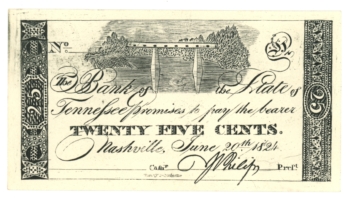 No.
The Bank of the State of
Tennessee promises to pay the bearer
TWENTY FIVE CENTS.
Nashville, June 20th 1824
Presdt.
25
25